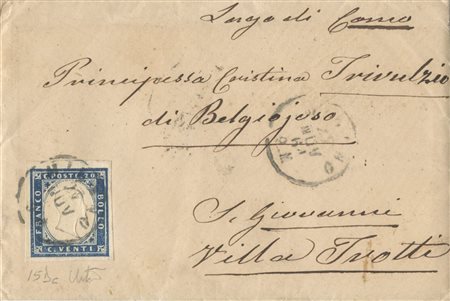 Lago di Como
Principessa Cristina Trivulzio
di Belgiojoso
S. Giovanni
Villa Trotti
C. POSTE 20
FRANCO
BOLLO
C. VENTI
15Dc